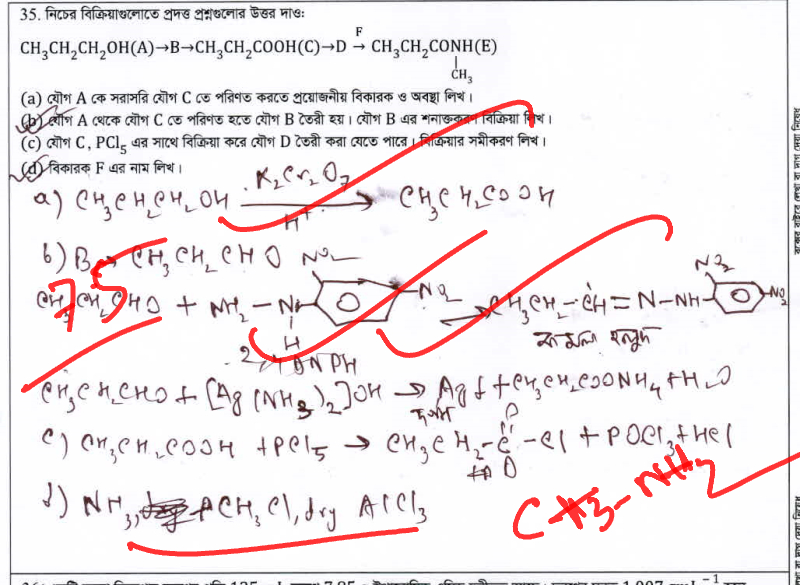 35. নিচের বিক্রিয়াগুলোতে প্রদত্ত প্রশ্নগুলোর উত্তর দাও:
F
CH₃CH₂CH₂OH(A)→B→CH₃CH₂COOH(C)→D → CH₃CH₂CONH(E)
CH₃
(a) যৌগ A কে সরাসরি যৌগ C তে পরিণত করতে প্রয়োজনীয় বিকারক ও অবস্থা লিখ।
(b) যৌগ A থেকে যৌগ C তে পরিণত হতে যৌগ B তৈরী হয়। যৌগ B এর শনাক্তকরণ বিক্রিয়া লিখ।
(c) যৌগ C, PCl₅ এর সাথে বিক্রিয়া করে যৌগ D তৈরী করা যেতে পারে। বিক্রিয়ার সমীকরণ লিখ।
(d) বিকারক F এর নাম লিখ।
a) CH₃CH₂CH₂OH K₂Cr₂O₇ → CH₃CH₂COOH
H⁺
b) B → CH₃CH₂CHO
NO₂ NO₂
CH₃CH₂CHO + NH₂ – N NO₂ ⇌ CH₃CH₂ – CH = N – NH NO₂
H কমলা হলুদ
2,4 DNPH
75
CH₃CH₂CHO + [Ag(NH₃)₂]OH → Ag↓ + CH₃CH₂COONH₄ + H₂O
দর্পণ
c) CH₃CH₂COOH + PCl₅ → CH₃CH₂–C–Cl + POCl₃ + HCl
O
d) NH₃, CH₃Cl, dry AlCl₃
CH₃–NH₂